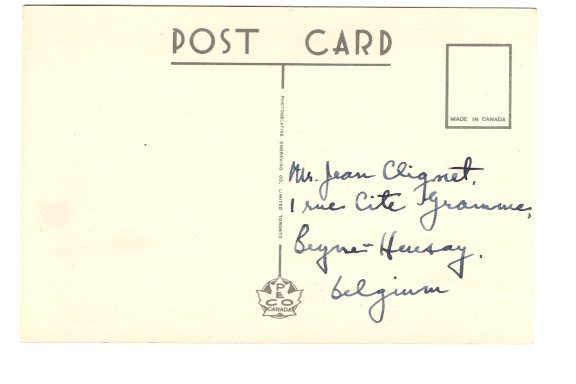 POST CARD
MADE IN CANADA
PHOTOGELATINE ENGRAVING CO. LIMITED TORONTO
Mr. Jean Clignet,
1 rue Cite Gramme,
Beyne-Heusay.
Belgium
PECO
CANADA